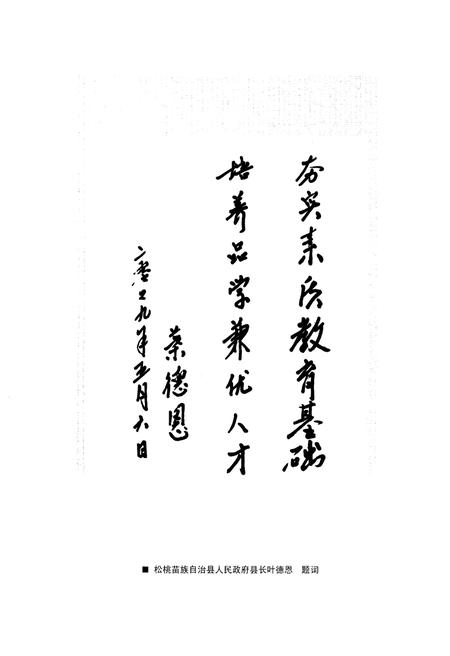 夯实素质教育基础
培养品学兼优人才
葉德恩
二零〇九年五月六日
■ 松桃苗族自治县人民政府县长叶德恩 题词